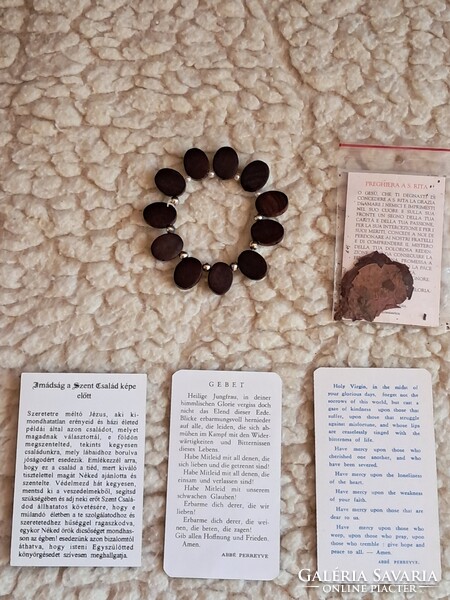 PREGHIERA A S. RITA
O GESÙ, CHE TI DEGNASTI DI
CONCEDERE A S. RITA LA GRAZIA
D'AMARE I NEMICI E IMPRIMESTI
NEL SUO CUORE E SULLA SUA
FRONTE UN SEGNO DELLA TUA
CARITÀ E DELLA TUA PASSIONE,
PER LA SUA INTERCESSIONE E PER I
SUOI MERITI, CONCEDI A NOI DI
PERDONARE AI NOSTRI FRATELLI
E DI COMPRENDERE IL MISTERO
DELLA TUA DOLOROSA
PROMESSA A
E LA PACE
Imádság a Szent Család képe
előtt
Szeretetre méltó Jézus, aki ki-
mondhatatlan erényeid és házi életed
példái által azon családot, melyet
magadnak választottál, a földön
megszentelted, tekints kegyesen
családunkra, mely lábaidhoz borulva
jóságodért esedezik. Emlékezzél arra,
hogy ez a család a tiéd, mert kiváló
tisztelettel magát Néked ajánlotta és
szentelte. Védelmezd hát kegyesen,
mentsd ki a veszedelmekből, segítsd
szükségében és adj neki erőt Szent Csalá-
dod állhatatos követésére, hogy e
milandó életben a te szolgálatodhoz és
szeretetedhez hűséggel ragaszkodva,
egykor Néked örök dicsőséget mondhas-
son az égben! esedezünk azon bizalomtól
áthatva, hogy isteni Egyszülötted
könyörgésedet szívesen meghallgatja.
GEBET
Heilige Jungfrau, in deiner
himmlischen Glorie vergiss doch
nicht das Elend dieser Erde.
Blicke erbarmungsvoll hernieder
auf alle, die leiden, die sich ab-
mühen im Kampf mit den Wider-
wärtigkeiten und Bitternissen
dieses Lebens.
Habe Mitleid mit all denen, die
sich lieben und die getrennt sind!
Habe Mitleid mit all denen, die
einsam und verlassen sind!
Habe Mitleid mit unserem
schwachen Glauben!
Erbarme dich derer, die wir
lieben!
Erbarme dich derer, die wei-
nen, die beten, die zagen!
Gib allen Hoffnung und Frieden.
Amen.
ABBÉ PERREYVE
Holy Virgin, in the midst of
your glorious days, forget not the
sorrows of this world, but cast a
gaze of kindness upon those that
suffer, upon those that struggle
against misfortune, and whose lips
are ceaselessly tinged with the
bitterness of life.
Have mercy upon those who
cherished one another, and who
have been severed.
Have mercy upon the loneliness
of the heart.
Have mercy upon the weakness
of your faith.
Have mercy upon those that are
dear to us.
Have mercy upon those who
weep, upon those who pray, upon
those who tremble : give hope and
peace to all. — Amen.
ABBÉ PERREYVE.
GALÉRIA SAVARIA
ONLINE PIACTÉR